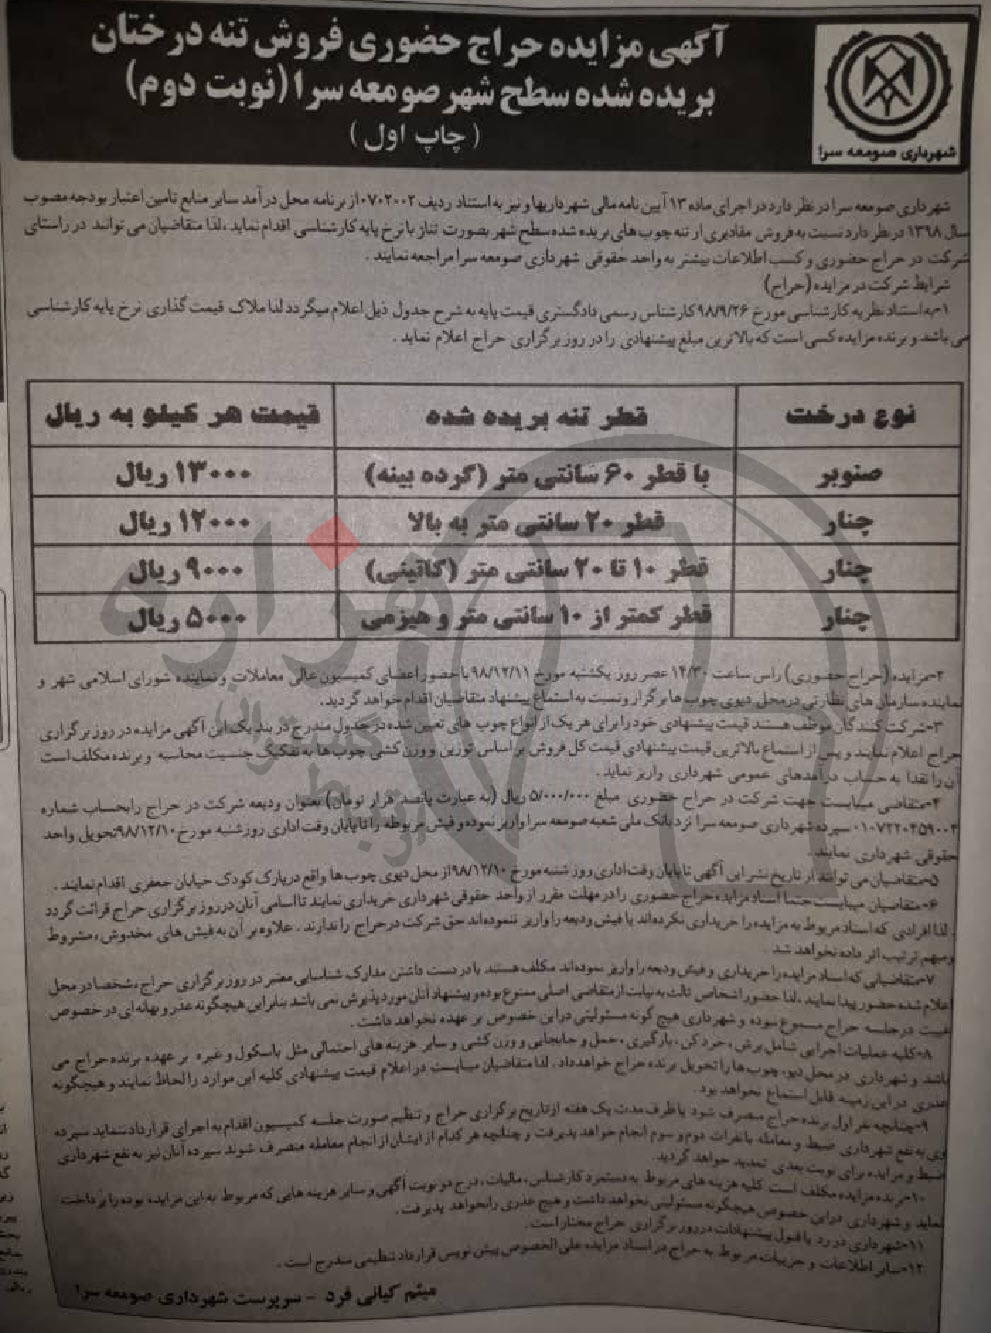 آگهی مزایده حراج حضوری فروش تنه درختان
بریده شده سطح شهر صومعه سرا (نوبت دوم)
(چاپ اول)
شهرداری صومعه سرا
شهرداری صومعه سرا در نظر دارد در اجرای ماده ۱۳ آیین نامه مالی شهرداریها و نیز به استناد ردیف ۰۷۰۲۰۰۲ از برنامه محل درآمد سایر منابع تامین اعتبار بودجه مصوب
سال ۱۳۹۸ در نظر دارد نسبت به فروش مقادیری از تنه چوب های بریده شده سطح شهر بصورت تناژ با نرخ پایه کارشناسی اقدام نماید ، لذا متقاضیان می توانند در راستای
شرکت در حراج حضوری و کسب اطلاعات بیشتر به واحد حقوقی شهرداری صومعه سرا مراجعه نمایند .
شرایط شرکت در مزایده (حراج)
۱-به استناد نظریه کارشناسی مورخ ۹۸/۹/۲۶ کارشناس رسمی دادگستری قیمت پایه به شرح جدول ذیل اعلام میگردد لذا ملاک قیمت گذاری نرخ پایه کارشناسی
می باشد و برنده مزایده کسی است که بالاترین مبلغ پیشنهادی را در روز برگزاری حراج اعلام نماید .
نوع درخت قطر تنه بریده شده قیمت هر کیلو به ریال
صنوبر با قطر ۶۰ سانتی متر (گرده بینه) ۱۳۰۰۰ ریال
چنار قطر ۲۰ سانتی متر به بالا ۱۲۰۰۰ ریال
چنار قطر ۱۰ تا ۲۰ سانتی متر (کاتینی) ۹۰۰۰ ریال
چنار قطر کمتر از ۱۰ سانتی متر و هیزمی ۵۰۰۰ ریال
هزاره
۲-مزایده (حراج حضوری) راس ساعت ۱۴/۳۰ عصر روز یکشنبه مورخ ۹۸/۱۲/۱۱ با حضور اعضای کمیسیون عالی معاملات و نماینده شورای اسلامی شهر و
نماینده سازمان های نظارتی در محل دپوی چوب ها برگزار و نسبت به استماع پیشنهاد متقاضیان اقدام خواهد گردید.
۳-شرکت کنندگان موظف هستند قیمت پیشنهادی خود را برای هر یک از انواع چوب های تعیین شده در جدول مندرج در بند یک این آگهی مزایده در روز برگزاری
حراج اعلام نمایند و پس از استماع بالاترین قیمت پیشنهادی قیمت کل فروش بر اساس توزین و وزن کشی چوب ها به تفکیک جنسیت محاسبه و برنده مکلف است
آن را نقدا به حساب درآمدهای عمومی شهرداری واریز نماید .
۴-متقاضی میبایست جهت شرکت در حراج حضوری مبلغ ۵/۰۰۰/۰۰۰ ریال (به عبارت پانصد هزار تومان) بعنوان ودیعه شرکت در حراج را بحساب شماره
۰۱۰۷۲۲۰۴۵۹۰۰۴ سپرده شهرداری صومعه سرا نزد بانک ملی شعبه صومعه سرا واریز نموده و فیش مربوطه را تا پایان وقت اداری روز شنبه مورخ ۹۸/۱۲/۱۰ تحویل واحد
حقوقی شهرداری نمایند .
۵-متقاضیان می توانند از تاریخ نشر این آگهی تا پایان وقت اداری روز شنبه مورخ ۹۸/۱۲/۱۰ از محل دپوی چوب ها واقع در پارک کودک خیابان جعفری اقدام نمایند .
۶-متقاضیان میبایست حتما اسناد مزایده حراج حضوری را در مهلت مقرر از واحد حقوقی شهرداری خریداری نمایند تا اسامی آنان در روز برگزاری حراج قرائت گردد
. لذا افرادی که اسناد مربوط به مزایده را خریداری نکرده اند یا فیش ودیعه را واریز ننموده اند حق شرکت در حراج را ندارند . علاوه بر آن به فیش های مخدوش ، مشروط
و مبهم ترتیب اثر داده نخواهد شد
۷-متقاضیانی که اسناد مزایده را خریداری و فیش ودیعه را واریز نموده اند مکلف هستند با در دست داشتن مدارک شناسایی معتبر در روز برگزاری حراج ، شخصا در محل
اعلام شده حضور پیدا نمایند ، لذا حضور اشخاص ثالث به نیابت از متقاضی اصلی ممنوع بوده و پیشنهاد آنان مورد پذیرش نمی باشد بنابراین هیچگونه عذر و بهانه ای در خصوص
غیبت در جلسه حراج مسموع نبوده و شهرداری هیچ گونه مسئولیتی در این خصوص بر عهده نخواهد داشت .
۸-کلیه عملیات اجرایی شامل برش ، خرد کن ، بارگیری ، حمل و جابجایی و وزن کشی و سایر هزینه های احتمالی مثل باسکول و غیره بر عهده برنده حراج می
باشد و شهرداری در محل دپو، چوب ها را تحویل برنده حراج خواهد داد . لذا متقاضیان میبایست در اعلام قیمت پیشنهادی کلیه این موارد را لحاظ نمایند و هیچگونه
عذری در این زمینه قابل استماع نخواهد بود .
۹-چنانچه نفر اول برنده حراج منصرف شود یا ظرف مدت یک هفته از تاریخ برگزاری حراج و تنظیم صورت جلسه کمیسیون اقدام به اجرای قرارداد ننماید سپرده
وی به نفع شهرداری ضبط و معامله با نفرات دوم و سوم انجام خواهد پذیرفت و چنانچه هر کدام از ایشان از انجام معامله منصرف شوند سپرده آنان نیز به نفع شهرداری
ضبط و مزایده برای نوبت بعدی تمدید خواهد گردید.
۱۰-برنده مزایده مکلف است کلیه هزینه های مربوط به دستمزد کارشناس ، مالیات ، درج دو نوبت آگهی و سایر هزینه هایی که مربوط به این مزایده بوده را پرداخت
نماید و شهرداری در این خصوص هیچگونه مسئولیتی نخواهد داشت و هیچ عذری را نخواهد پذیرفت .
۱۱-شهرداری در رد یا قبول پیشنهادات در روز برگزاری حراج مختار است .
۱۲-سایر اطلاعات و جزییات مربوط به حراج در اسناد مزایده علی الخصوص پیش نویس قرارداد تنظیمی مندرج است .
میثم کیانی فرد - سرپرست شهرداری صومعه سرا